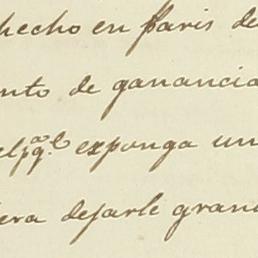 hecho en Paris de
nto de ganancia
el pᵃ qᵉ exponga un
era dejarle gran